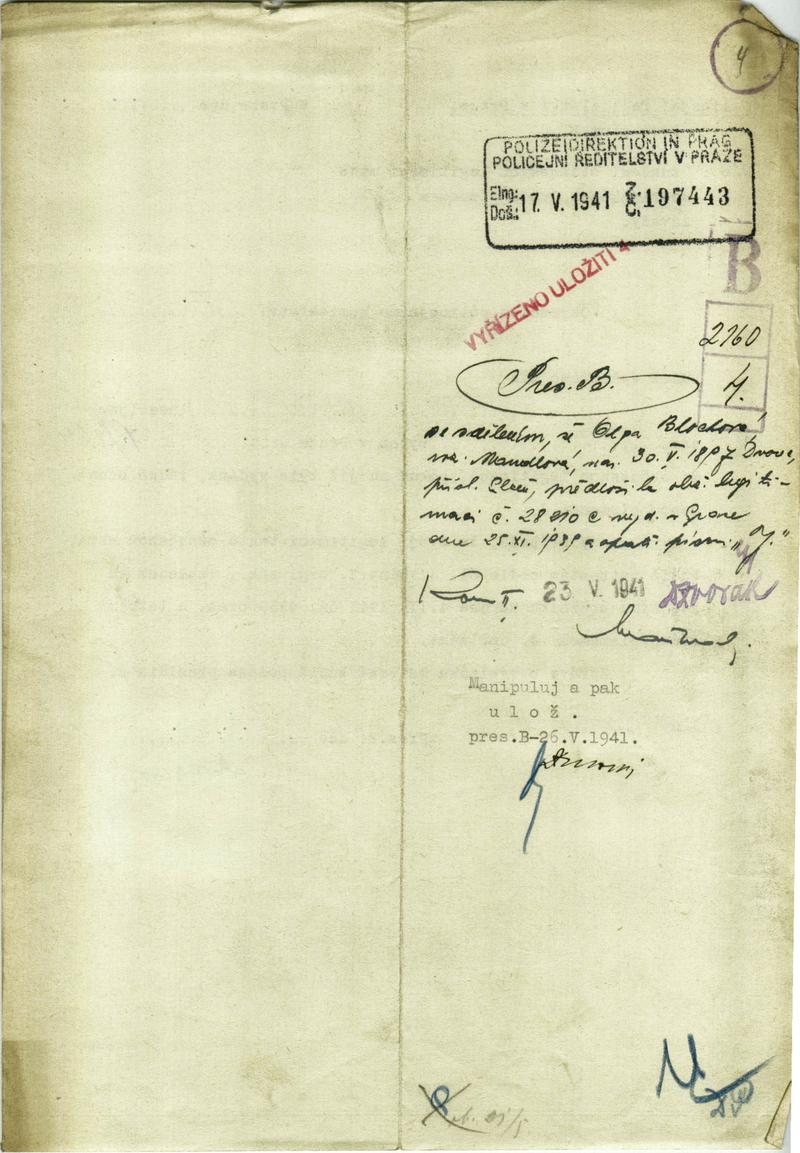 4
POLIZEIDIREKTION IN PRAG
POLICEJNÍ ŘEDITELSTVÍ V PRAZE
Elng:
Doš.: 17. V. 1941 Z. Č. 197443
B
VYŘÍZENO ULOŽITI
2160
Pres. B. 4.
se sdělením, že Olga Blochová,
roz. Mandlová, nar. 30. V. 1897
přísl. předložila obč. legiti-
maci č. 28 v Praze
dne 25. XI. 1939 a opatř. písm. "J."
II. 23 V. 1941 Dvořák
Manipuluj a pak
u l o ž .
pres.B-26.V.1941.